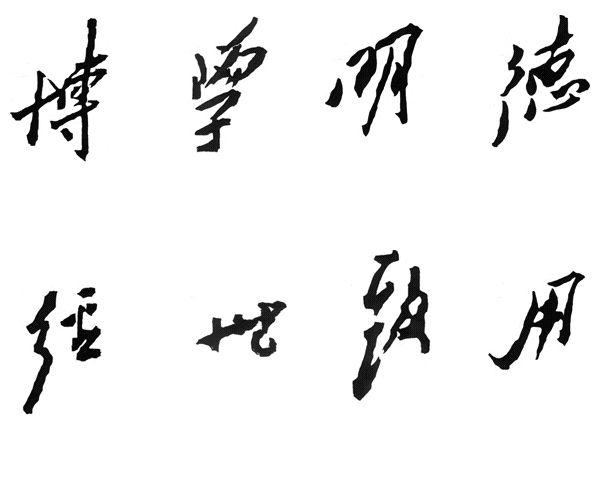 博學明德
經世致用